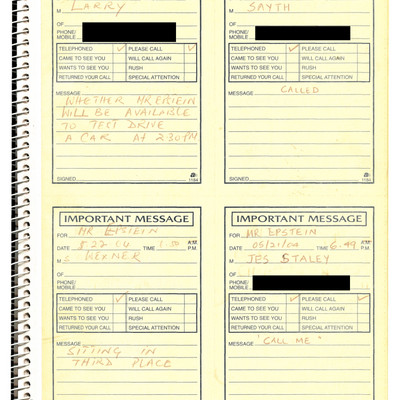 M LARRY
OF
PHONE/
MOBILE
TELEPHONED ✓ PLEASE CALL ✓
CAME TO SEE YOU WILL CALL AGAIN
WANTS TO SEE YOU RUSH
RETURNED YOUR CALL SPECIAL ATTENTION
MESSAGE
WHETHER MR
WILL BE AVAILABLE
TO TEST DRIVE
A CAR AT 2:30 PM
SIGNED
1184
M SAYTH
OF
PHONE/
MOBILE
TELEPHONED ✓ PLEASE CALL
CAME TO SEE YOU WILL CALL AGAIN
WANTS TO SEE YOU RUSH
RETURNED YOUR CALL SPECIAL ATTENTION
MESSAGE
CALLED
SIGNED
1184
IMPORTANT MESSAGE
FOR MR EPSTEIN
DATE TIME A.M.
P.M.
M
OF
PHONE/
MOBILE
TELEPHONED ✓ PLEASE CALL
CAME TO SEE YOU WILL CALL AGAIN
WANTS TO SEE YOU RUSH
RETURNED YOUR CALL SPECIAL ATTENTION
MESSAGE
SITTING IN
THIRD PLACE
IMPORTANT MESSAGE
FOR MR EPSTEIN
DATE 05/21/04 TIME 6.49 A.M.
P.M.
M JES STALEY
OF
PHONE/
MOBILE
TELEPHONED PLEASE CALL ✓
CAME TO SEE YOU WILL CALL AGAIN
WANTS TO SEE YOU RUSH
RETURNED YOUR CALL SPECIAL ATTENTION
MESSAGE
"CALL ME"